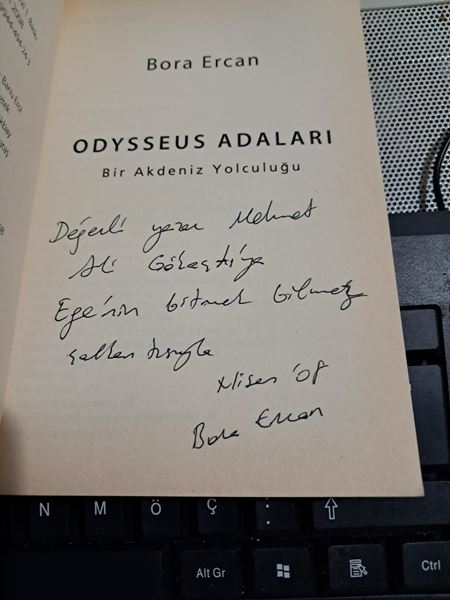 Bora Ercan
ODYSSEUS ADALARI
Bir Akdeniz Yolculuğu
Değerli yazar Mehmet
Ali
Ege'nin bitmek bilmez
Nisan '08
Bora Ercan
2008
N M Ö Ç : .
Alt Gr Ctrl